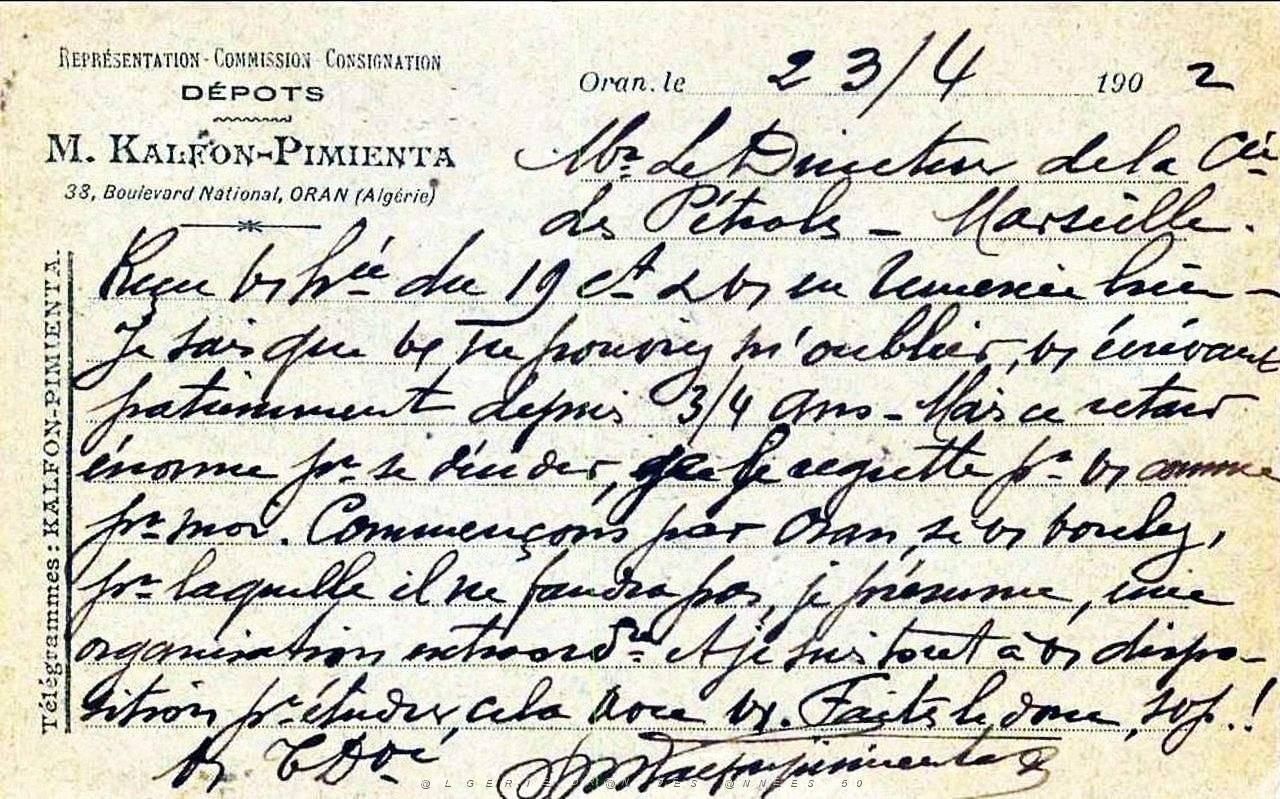 REPRÉSENTATION - COMMISSION - CONSIGNATION
DÉPOTS
M. KALFON-PIMIENTA
38, Boulevard National, ORAN (Algérie)
Télégrammes: KALFON-PIMIENTA.
Oran. le 23/4 1902
Mr Le Directeur de la Cie
des Pétroles - Marseille.
Reçu vs hrée du 19 ct & vs en remercie bien -
Je sais que vs ne pouvez m'oublier, vs écrivant
patiemment depuis 3/4 ans - Mais ce retard
énorme pr se décider, je le regrette pr vs comme
pr moi. Commençons par Oran, si vs voulez,
pr laquelle il ne faudra pas, je présume, une
organisation extraordre. Et je suis tout à vs dispo-
sition pr étudier cela avec vs. Faites le donc, svp.!
Vs T Dvé
M Kalfonpimienta
@LGERIE @NNEES 50